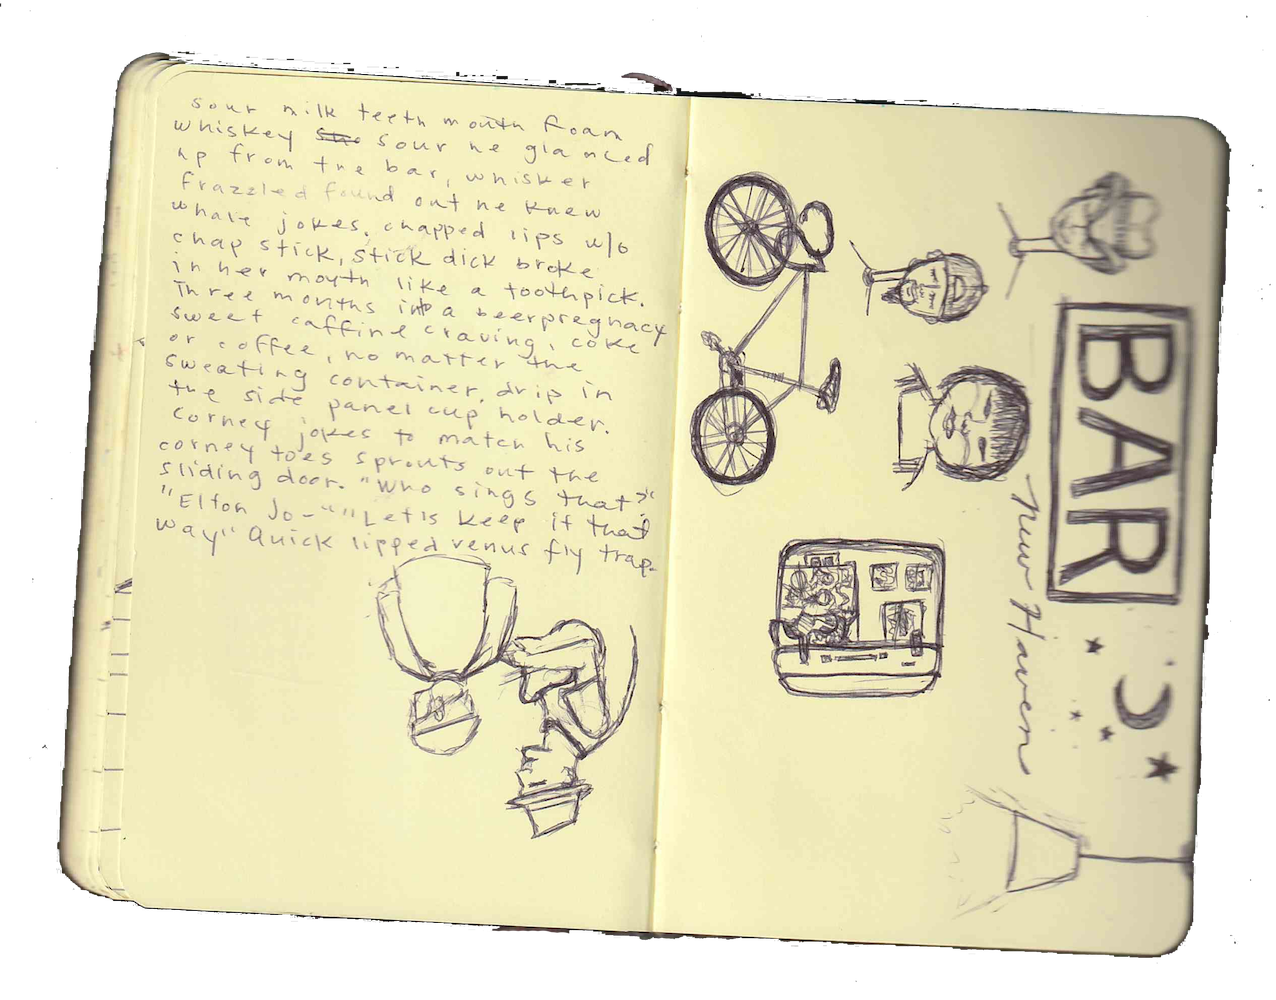 sour milk teeth mouth foam
whiskey sour he glanced
up from the bar, whisker
frazzled found out he knew
whale jokes, chapped lips w/o
chap stick, stick dick broke
in her mouth like a toothpick.
Three months into a beerpregnacy
sweet caffine craving, coke
or coffee, no matter the
sweating container, drip in
the side panel cup holder.
Corney jokes to match his
corney toes sprouts out the
sliding door. "Who sings that?"
"Elton Jo-" "Let's keep it that
way" Quick lipped venus fly trap.
BAR
New Haven